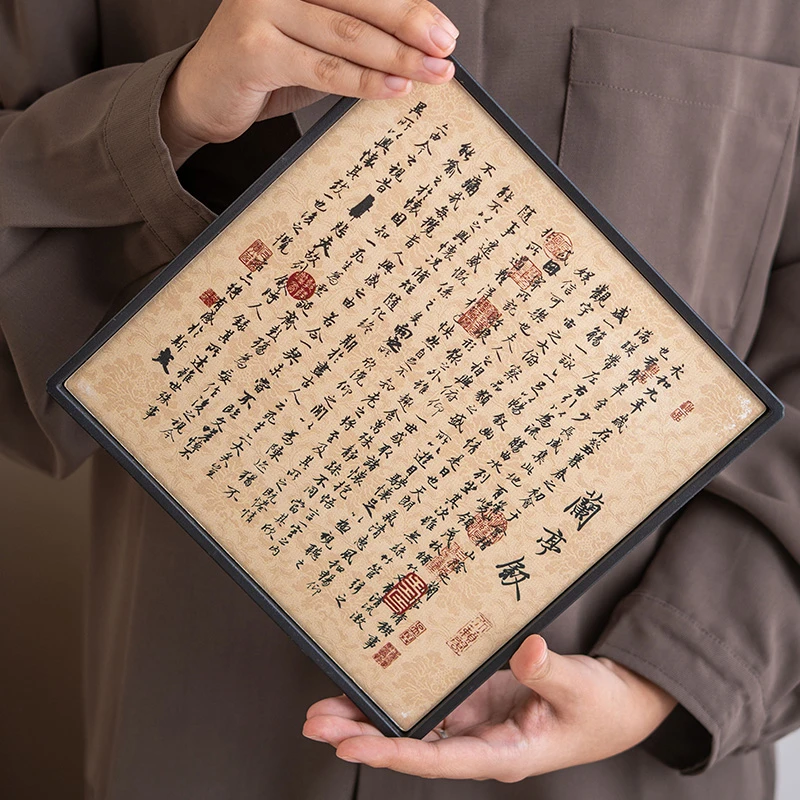 蘭亭敘
永和九年歲在癸丑暮春之初會于會稽山陰之蘭亭脩稧事
也羣賢畢至少長咸集此地有崇山峻領茂林脩竹又有清流激
湍暎帶左右引以為流觴曲水列坐其次雖無絲竹管弦之
盛一觴一詠亦足以暢敘幽情是日也天朗氣清惠風和暢仰
觀宇宙之大俯察品類之盛所以遊目騁懷足以極視聽之
娛信可樂也夫人之相與俯仰一世或取諸懷抱悟言一室之內
或因寄所託放浪形骸之外雖趣舍萬殊靜躁不同當其欣
於所遇蹔得於己怏然自足不知老之將至及其所之既惓情
隨事遷感慨係之矣向之所欣俛仰之閒以為陳迹猶不
能不以之興懷況脩短隨化終期於盡古人云死生亦大矣豈
不痛哉每攬昔人興感之由若合一契未嘗不臨文嗟悼不
能喻之於懷固知一死生為虛誕齊彭殤為妄作後之視今
亦由今之視昔悲夫故列敘時人錄其所述雖世殊事
異所以興懷其致一也後之攬者亦將有感於斯文